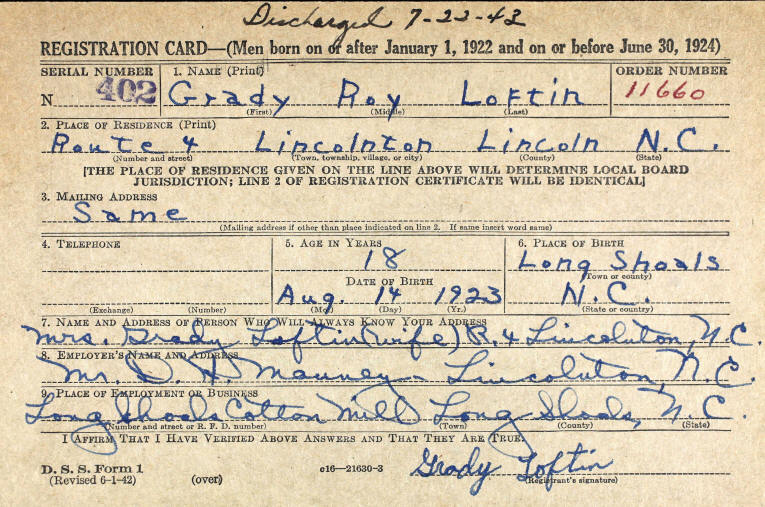 Discharged 7-22-43
REGISTRATION CARD—(Men born on or after January 1, 1922 and on or before June 30, 1924)
SERIAL NUMBER 1. NAME (Print) ORDER NUMBER
N 402 Grady Roy Loftin 11660
(First) (Middle) (Last)
2. PLACE OF RESIDENCE (Print)
Route 4 Lincolnton Lincoln N.C.
(Number and street) (Town, township, village, or city) (County) (State)
[THE PLACE OF RESIDENCE GIVEN ON THE LINE ABOVE WILL DETERMINE LOCAL BOARD
JURISDICTION; LINE 2 OF REGISTRATION CERTIFICATE WILL BE IDENTICAL]
3. MAILING ADDRESS
Same
(Mailing address if other than place indicated on line 2. If same insert word same)
4. TELEPHONE 5. AGE IN YEARS 6. PLACE OF BIRTH
18 Long Shoals
(Town or county)
DATE OF BIRTH
Aug. 14 1923 N.C.
(Exchange) (Number) (Mo.) (Day) (Yr.) (State or country)
7. NAME AND ADDRESS OF PERSON WHO WILL ALWAYS KNOW YOUR ADDRESS
Mrs. Grady Loftin (wife) R.4 Lincolnton, N.C.
8. EMPLOYER'S NAME AND ADDRESS
Mr. D. H. Mauney - Lincolnton, N.C.
9. PLACE OF EMPLOYMENT OR BUSINESS
Long Shoals Cotton Mill Long Shoals, N.C.
(Number and street or R. F. D. number) (Town) (County) (State)
I AFFIRM THAT I HAVE VERIFIED ABOVE ANSWERS AND THAT THEY ARE TRUE.
D. S. S. Form 1 c16—21630-3 Grady Loftin
(Revised 6-1-42) (over) (Registrant's signature)